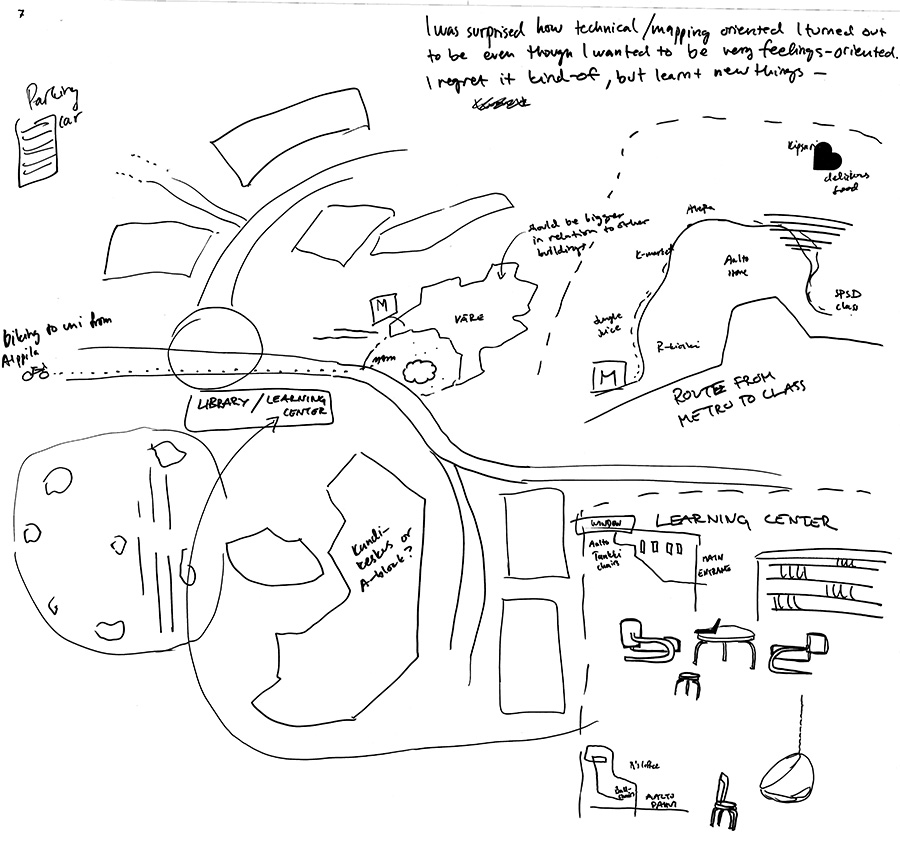 7
I was surprised how technical/mapping oriented I turned out
to be even though I wanted to be very feelings-oriented.
I regret it kind-of, but learnt new things –
Parking
car
Kipsari
delicious
food
should be bigger
in relation to other
buildings
Alepa
K-market
Aalto
store
SPSD
class
Jungle
juice
R-kioski
M
ROUTE FROM
METRO TO CLASS
M
VÄRE
biking to uni from
LIBRARY / LEARNING
CENTER
Kandi-
keskus or
A-block?
LEARNING CENTER
WINDOW
Aalto
chairs
MAIN
ENTRANCE
AALTO